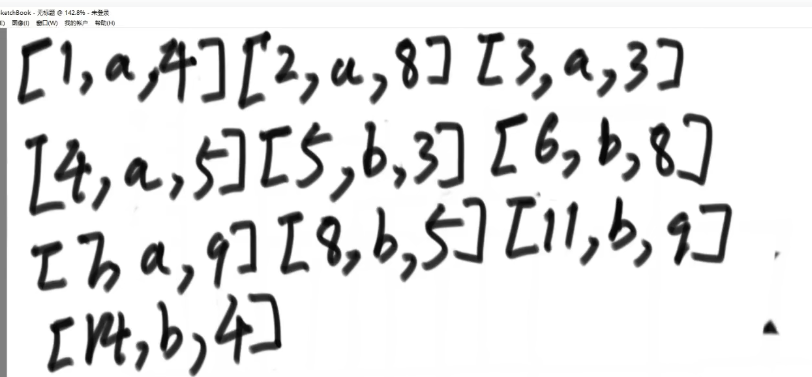 SketchBook - 无标题 @ 142.8% - 未登录
图像(I) 窗口(W) 我的帐户 帮助(H)
[1,a,4][2,a,8] [3,a,3]
[4,a,5][5,b,3] [6,b,8]
[7,a,9] [8,b,5] [11,b,9]
[14,b,4]